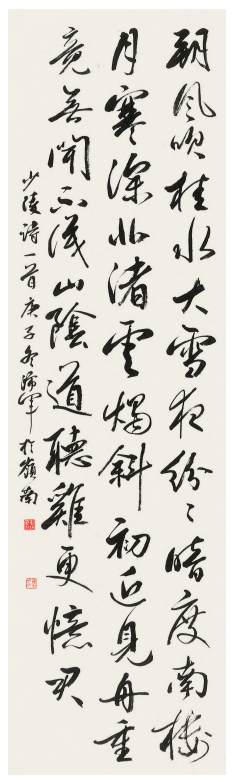 朔風吹桂水大雪夜紛〻暗度南樓
月寒深北渚雲燭斜初近見舟重
竟無聞不識山陰道聽雞更憶君
少陵詩一首庚子冬於嶺南